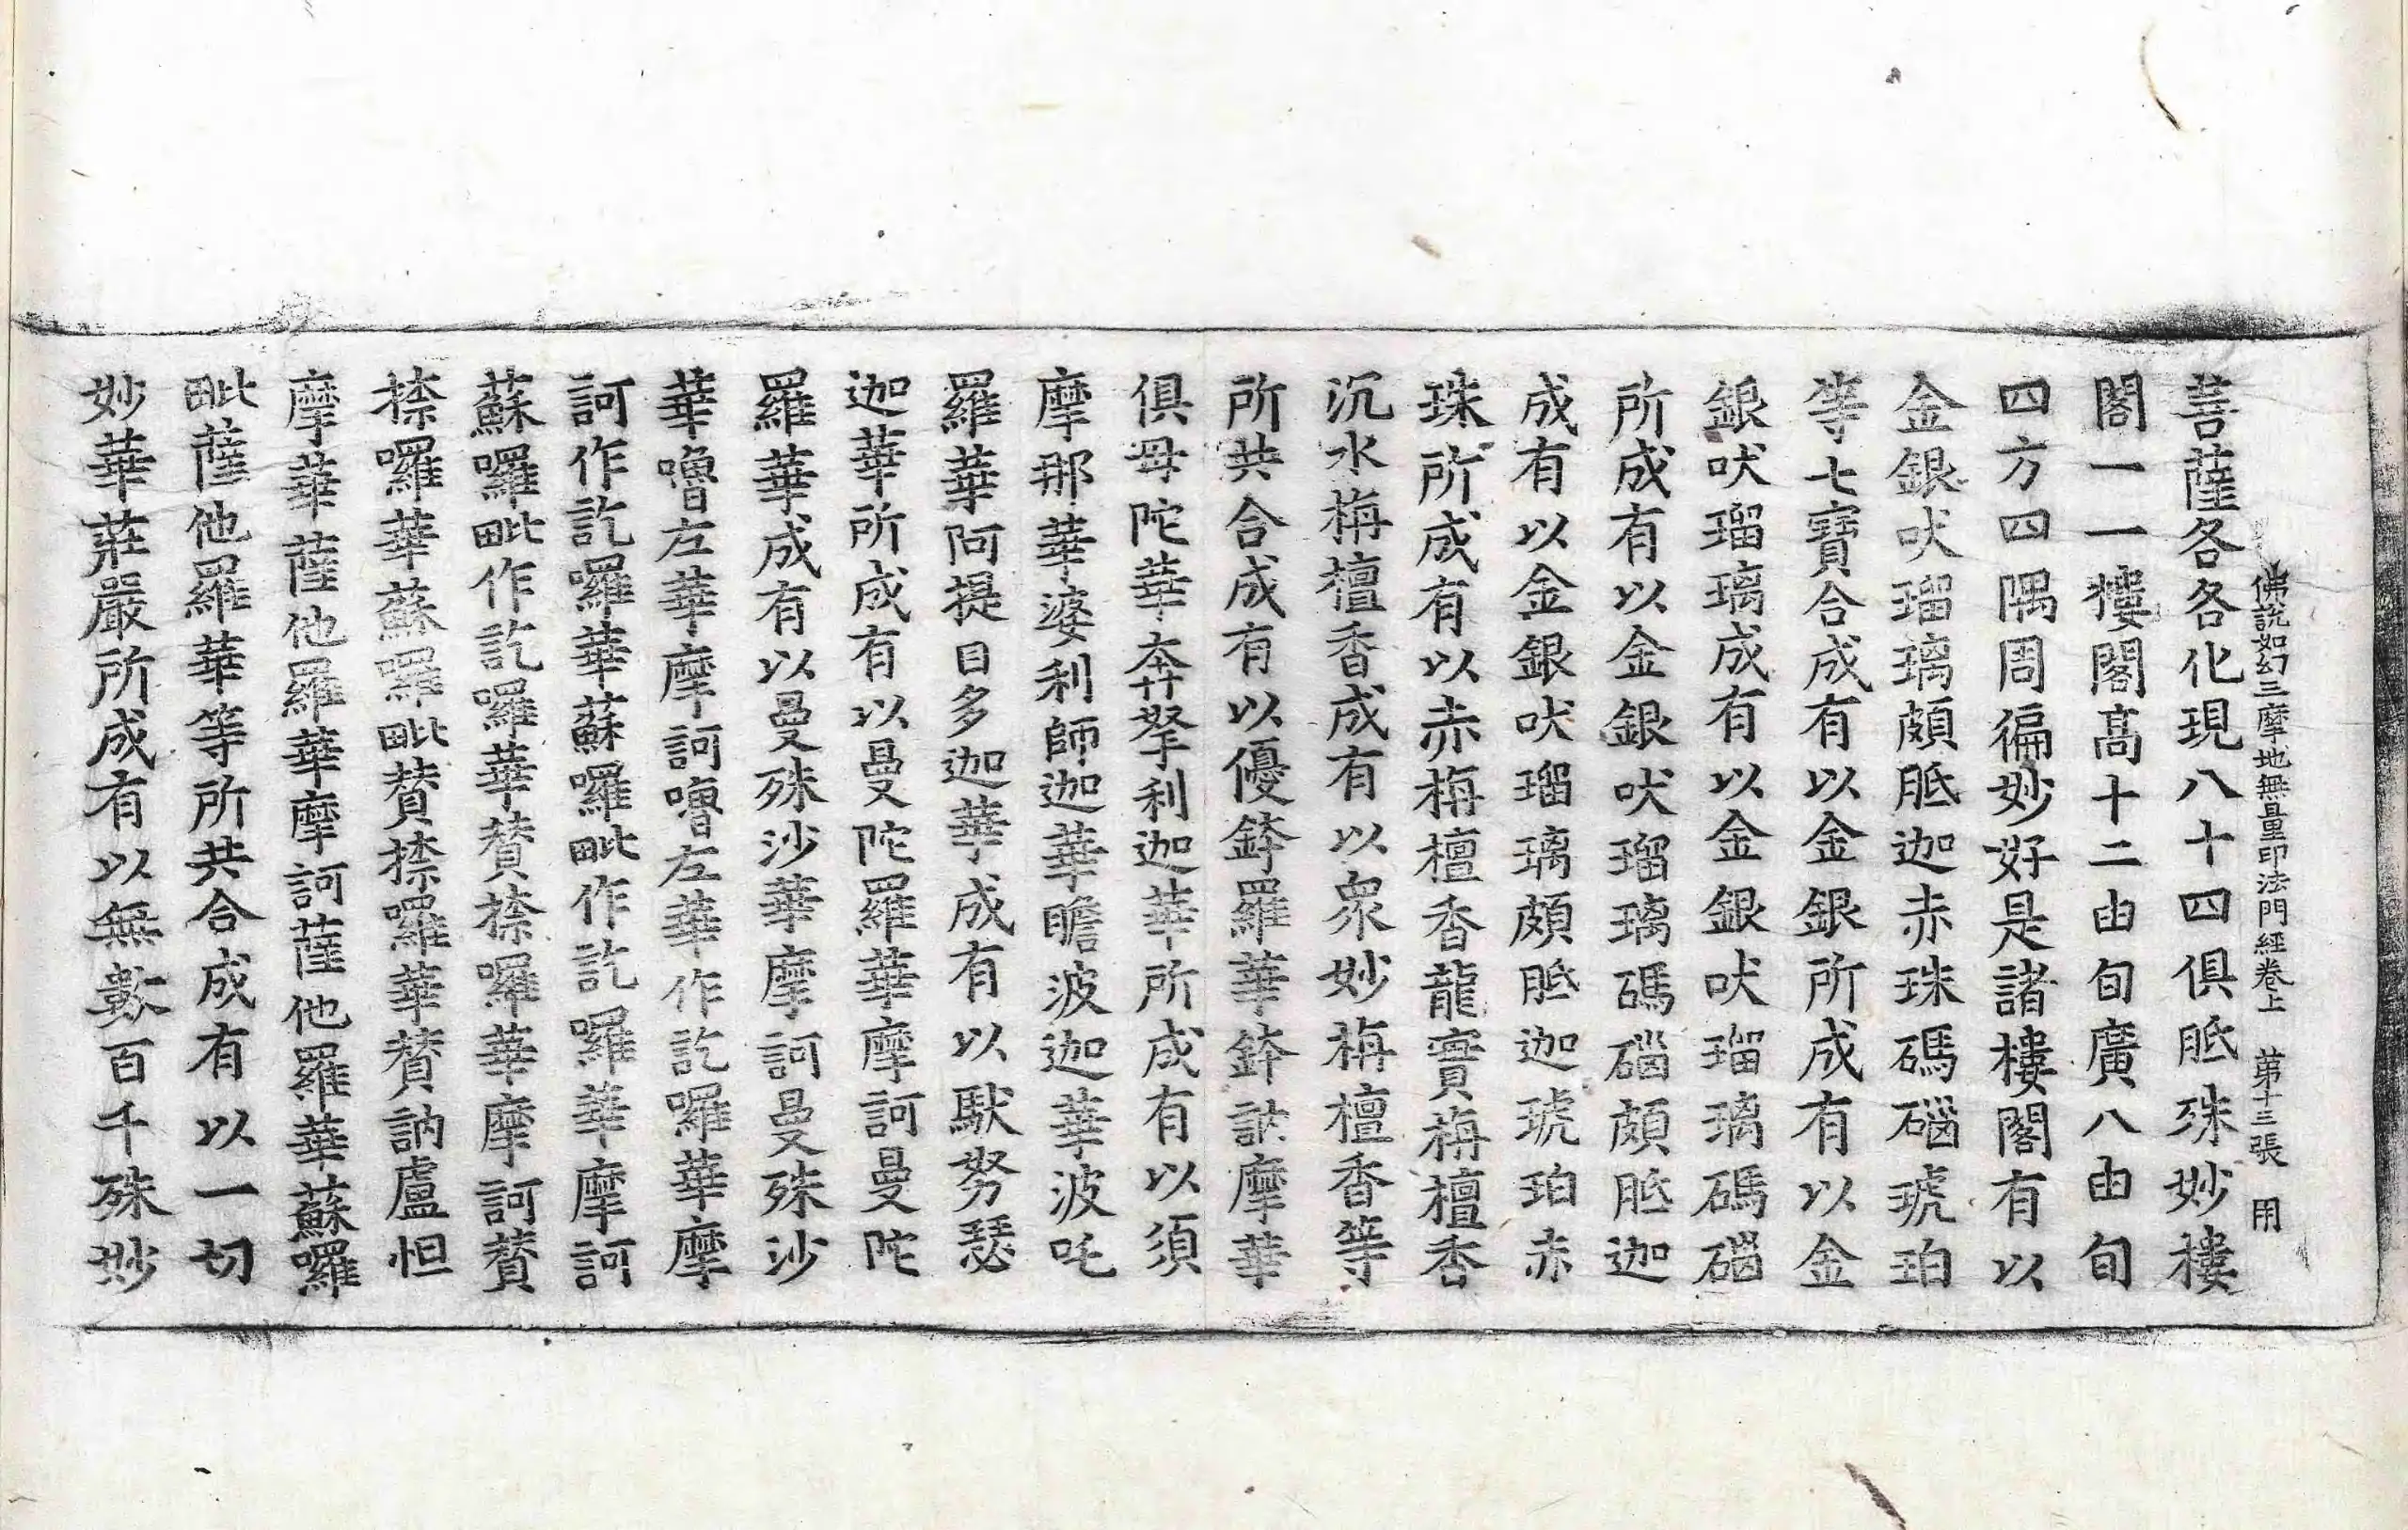 佛說如幻三摩地無量印法門經卷上 第十三張 用
菩薩各各化現八十四俱胝殊妙樓
閣一一樓閣高十二由旬廣八由旬
四方四隅周徧妙好是諸樓閣有以
金銀吠瑠璃頗胝迦赤珠碼碯琥珀
等七寶合成有以金銀所成有以金
銀吠瑠璃成有以金銀吠瑠璃碼碯
所成有以金銀吠瑠璃碼碯頗胝迦
成有以金銀吠瑠璃頗胝迦琥珀赤
珠所成有以赤栴檀香龍實栴檀香
沉水栴檀香成有以眾妙栴檀香等
所共合成有以優鉢羅華鉢訥摩華
俱母陀華奔拏利迦華所成有以須
摩那華婆利師迦華瞻波迦華波吒
羅華阿提目多迦華成有以馱努瑟
迦華所成有以曼陀羅華摩訶曼陀
羅華成有以曼殊沙華摩訶曼殊沙
華嚕左華摩訶嚕左華作訖羅華摩
訶作訖囉華蘇囉毗作訖囉華摩訶
蘇囉毗作訖囉華賛捺囉華摩訶賛
捺囉華蘇囉毗賛捺囉華賛訥盧怛
摩華薩他羅華摩訶薩他羅華蘇囉
毗薩他羅華等所共合成有以一切
妙華莊嚴所成有以無數百千殊妙